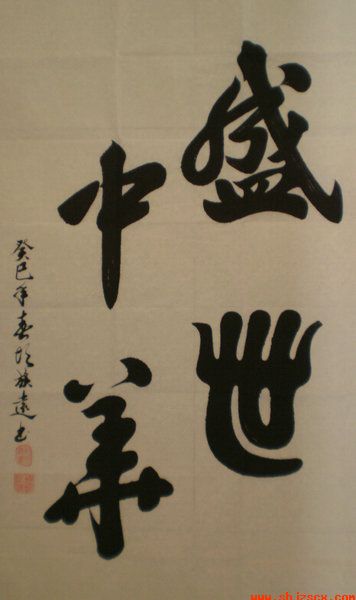 盛世
中华
癸巳年春月族远书
www.shizscx.com